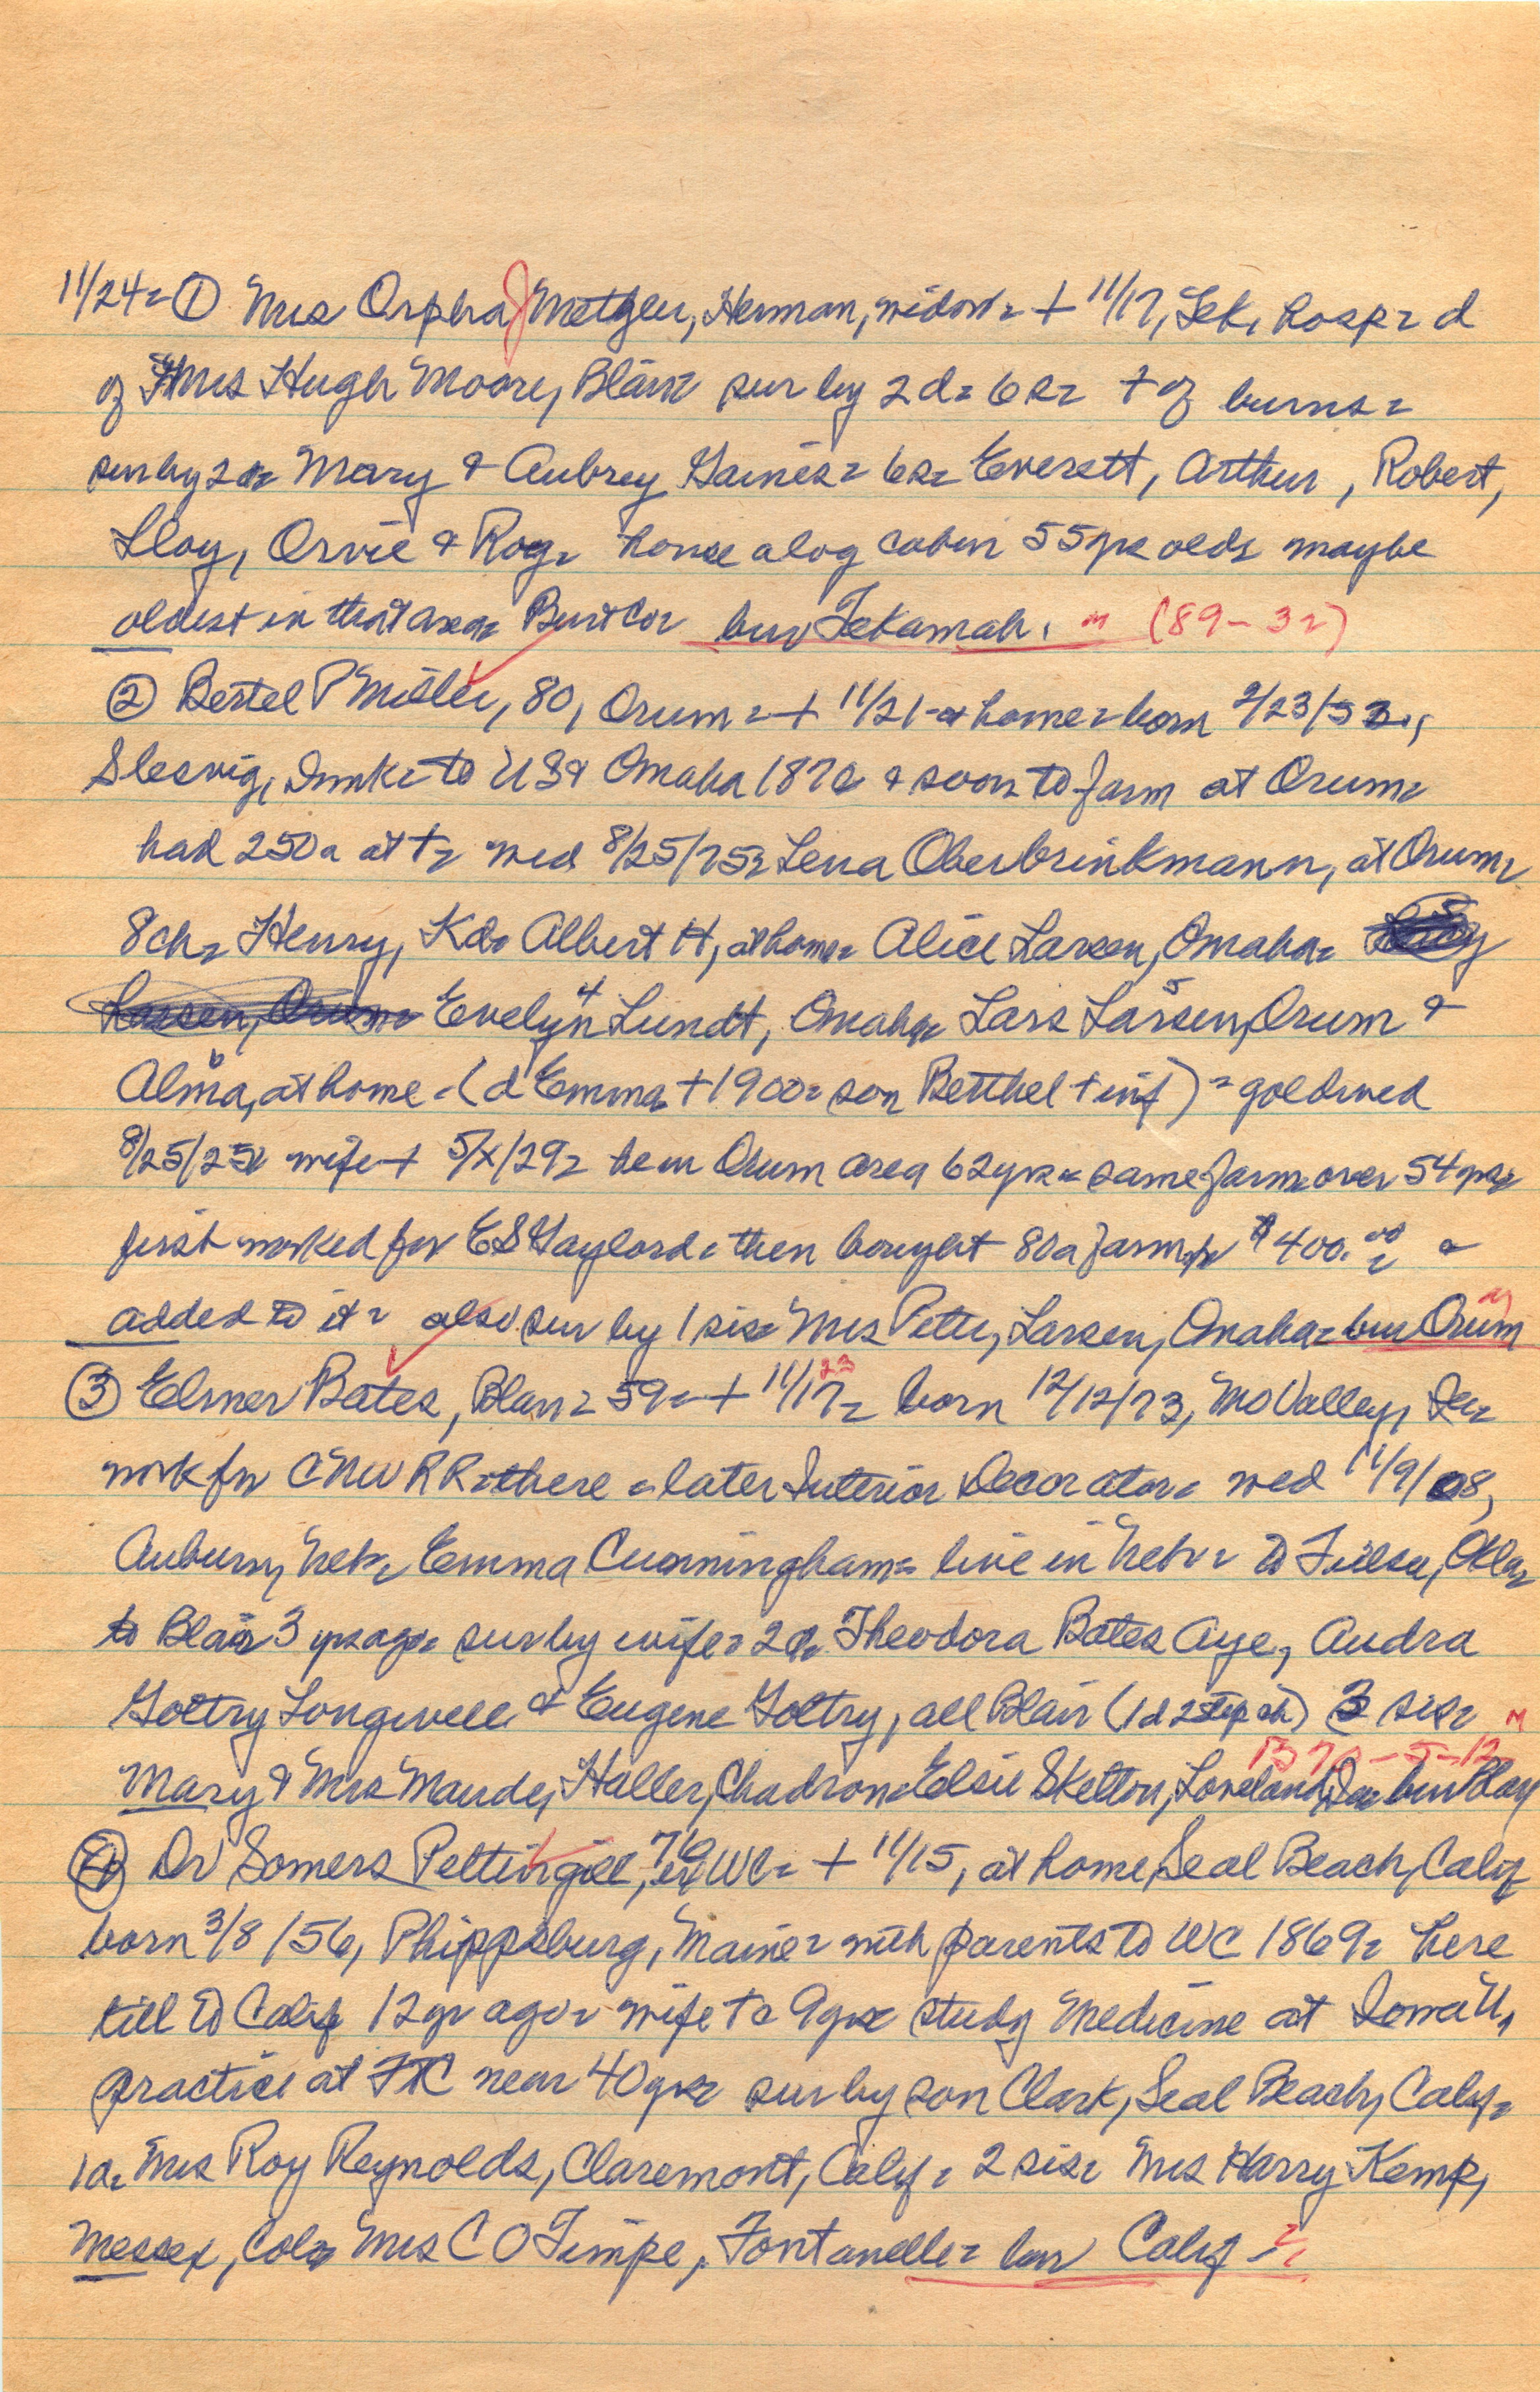 11/24= ① Mrs Orpha J Metzler, Herman, widow = + 11/17, Tek, hosp = d
of Mrs Hugh Moore, Blair = sur by 2 d = 6 s = + of burns =
sur by 2 d = Mary & Aubrey Gaines = 6 s = Everett, Arthur, Robert,
Lloy, Orvie & Roy = house a log cabin 55 yrs old = maybe
oldest in that area = Burt Co = bur Tekamah. m (89-3=)
② Bertel P Miller, 80, Orum = + 11/21 = at home = born 2/23/53,
Slesvig, Dmk = to US & Omaha 1870 & soon to farm at Orum =
had 250a at + = wed 8/25/75 = Lena Oberbrinkmann, at Orum =
8 ch = Henry, Kd = Albert H, at home = Alice Larsen, Omaha =
Larsen, Orum = Evelyn 4 Lundt, Omaha = Lars 5 Larsen, Orum &
Alma, 6 at home = (d Emma + 1900 = son Betthel + inf) = gold wed
8/25/25 = wife + 5/X/29 = he in Orum area 62 yrs = same farm over 54 yrs =
first worked for E S Gaylord = then bought 80a farm for $400.00 = &
added to it = also sur by 1 sis = Mrs Pete, Larsen, Omaha = bur Orum m
③ Elmer Bates, Blair = 59 = + 11/17 23 = born 12/12/73, Mo Valley, Ia =
work for CNW RR = there = later Interior Decorator = wed 11/9/08,
Auburn, Neb = Emma Cunningham = live in Neb = to Tulsa, Okla =
to Blair 3 yrs ago = sur by wife = 2 d = Theodora Bates Aye, Audra
Goltry Longwell & Eugene Goltry, all Blair (1 d 2 step ch) 3 sis = m
Mary & Mrs Maude, Haller, Chadron = Elsie Skelton, Loveland, Ia = bur Blair B70-5-12
④ Dr Somers Pettingill, 76, ex WC = + 11/15, at home, Seal Beach, Calif
born 3/8/56, Phippsburg, Maine = with parents to WC 1869 = here
till to Calif 12 yr ago = wife + c 9 yrs = study medicine at Iowa U,
practice at FtC near 40 yrs = sur by son Clark, Seal Beach, Calif =
1 d = Mrs Roy Reynolds, Claremont, Calif = 2 sis = Mrs Harry Kemp,
Messex, Colo = Mrs C O Timpe, Fontanelle = bur Calif =